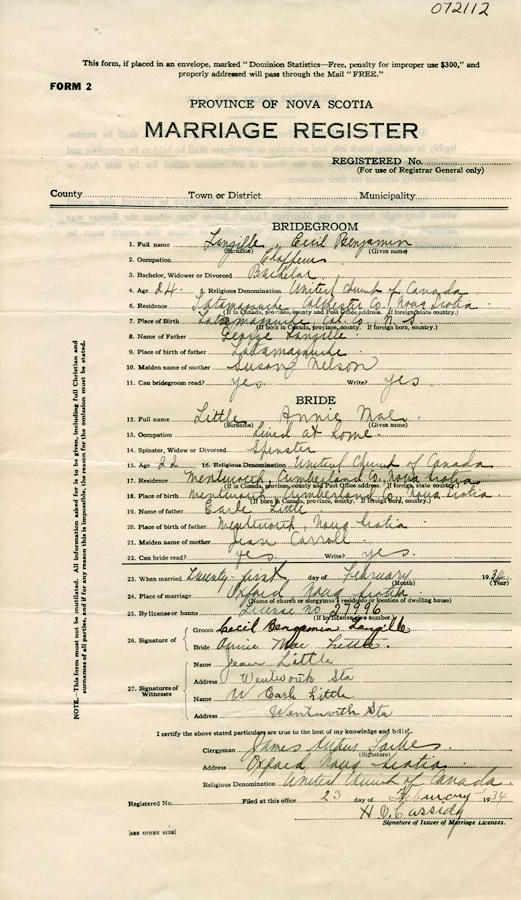 072112
This form, if placed in an envelope, marked "Dominion Statistics—Free, penalty for improper use $300," and
properly addressed will pass through the Mail "FREE."
FORM 2
PROVINCE OF NOVA SCOTIA
MARRIAGE REGISTER
REGISTERED No.
(For use of Registrar General only)
County Town or District Municipality
BRIDEGROOM
1. Full name Langille, Cecil Benjamin
(Surname) (Given name)
2. Occupation
3. Bachelor, Widower or Divorced Bachelor
4. Age 24 5. Religious Denomination United Church of Canada
6. Residence Tatamagouche Colchester Co., Nova Scotia
(If in Canada, province, county and Post Office address. If foreign, state country.)
7. Place of Birth Tatamagouche Col. Co., N. S.
(If born in Canada, province, county. If foreign born, country.)
8. Name of Father George Langille
9. Place of birth of father Tatamagouche
10. Maiden name of mother Susan Nelson
11. Can bridegroom read? yes. Write? yes.
BRIDE
12. Full name Little Annie Mae
(Surname) (Given name)
13. Occupation Lived at home.
14. Spinster, Widow or Divorced Spinster
15. Age 22 16. Religious Denomination United Church of Canada
17. Residence Wentworth, Cumberland Co., Nova Scotia
(If in Canada, province, county and Post Office address. If foreign, state country.)
18. Place of birth Wentworth, Cumberland Co., Nova Scotia
(If born in Canada, province, county. If foreign born, country.)
19. Name of father Earle Little
20. Place of birth of father Wentworth, Nova Scotia
21. Maiden name of mother Jean Carroll
22. Can bride read? yes. Write? yes.
23. When married Twenty-first day of February 1934
(Month) (Year)
24. Place of marriage Oxford Nova Scotia
(Name of church or clergyman's residence or location of dwelling house)
25. By license or banns License no 27996
(If by license give number.)
26. Signature of Groom Cecil Benjamin Langille
Bride Annie Mae Little
27. Signatures of Witnesses
Name Jean Little
Address Wentworth Sta
Name W Earle Little
Address Wentworth Sta
I certify the above stated particulars are true to the best of my knowledge and belief.
Clergyman James
(Signature)
Address Oxford Nova Scotia
Religious Denomination United Church of Canada
Registered No. Filed at this office 23 day of February 1934
H V Cassidy
Signature of Issuer of Marriage Licenses.
[SEE OTHER SIDE]
NOTE.—This form must not be mutilated. All information asked for is to be given, including full Christian and
surnames of all parties, and if for any reason this is impossible, the reason for the omission must be stated.